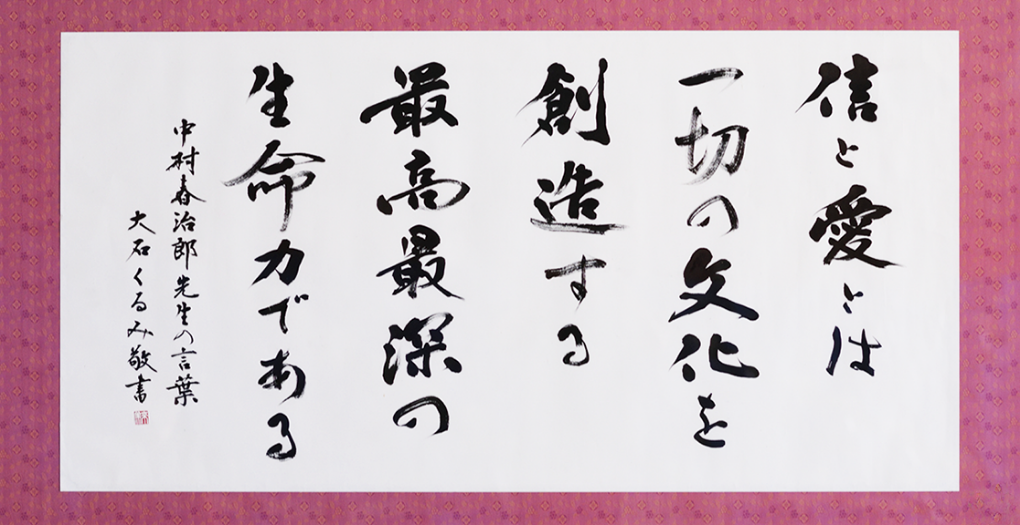 信と愛とは
一切の文化を
創造する
最高最深の
生命力である
中村春治郎先生の言葉
大石くるみ敬書